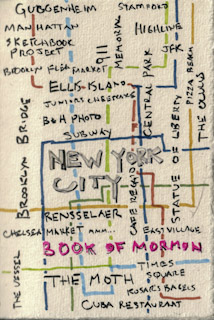 GUGGENHEIM
STAMFORD
MANHATTAN
HIGHLINE
SKETCHBOOK
PROJECT
JFK
BROOKLYN FLEA MARKET
911
MEMORIAL
PIZZA BEACH
ELLIS-ISLAND
CENTRAL PARK
THE OCULUS
JUNIORS CHEESECAKE
B&H PHOTO
SUBWAY
BROOKLYN BRIDGE
STATUE OF LIBERTY
NEW YORK
CITY
CAFE REGGIO
RENSSELAER
CHELSEA MARKET AMM...
EAST VILLAGE
BOOK OF MORMON
THE VESSEL
TIMES
SQUARE
THE MOTH
ROSAR'S BAGELS
CUBA RESTAURANT